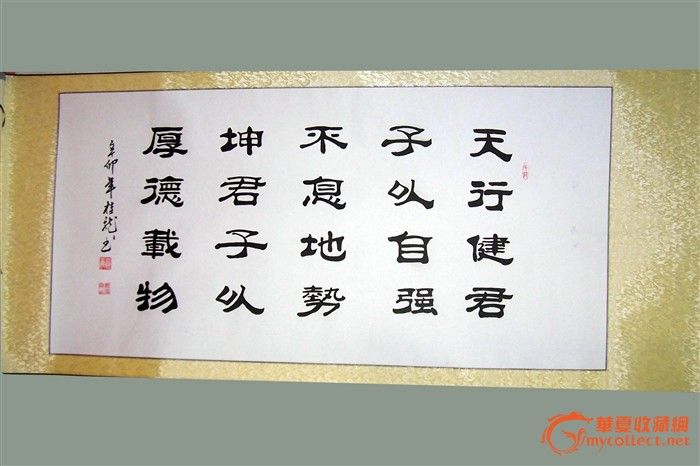 天行健君
子以自强
不息地勢
坤君子以
厚德載物
辛卯年桂龙书
華夏收藏網
mycollect.net